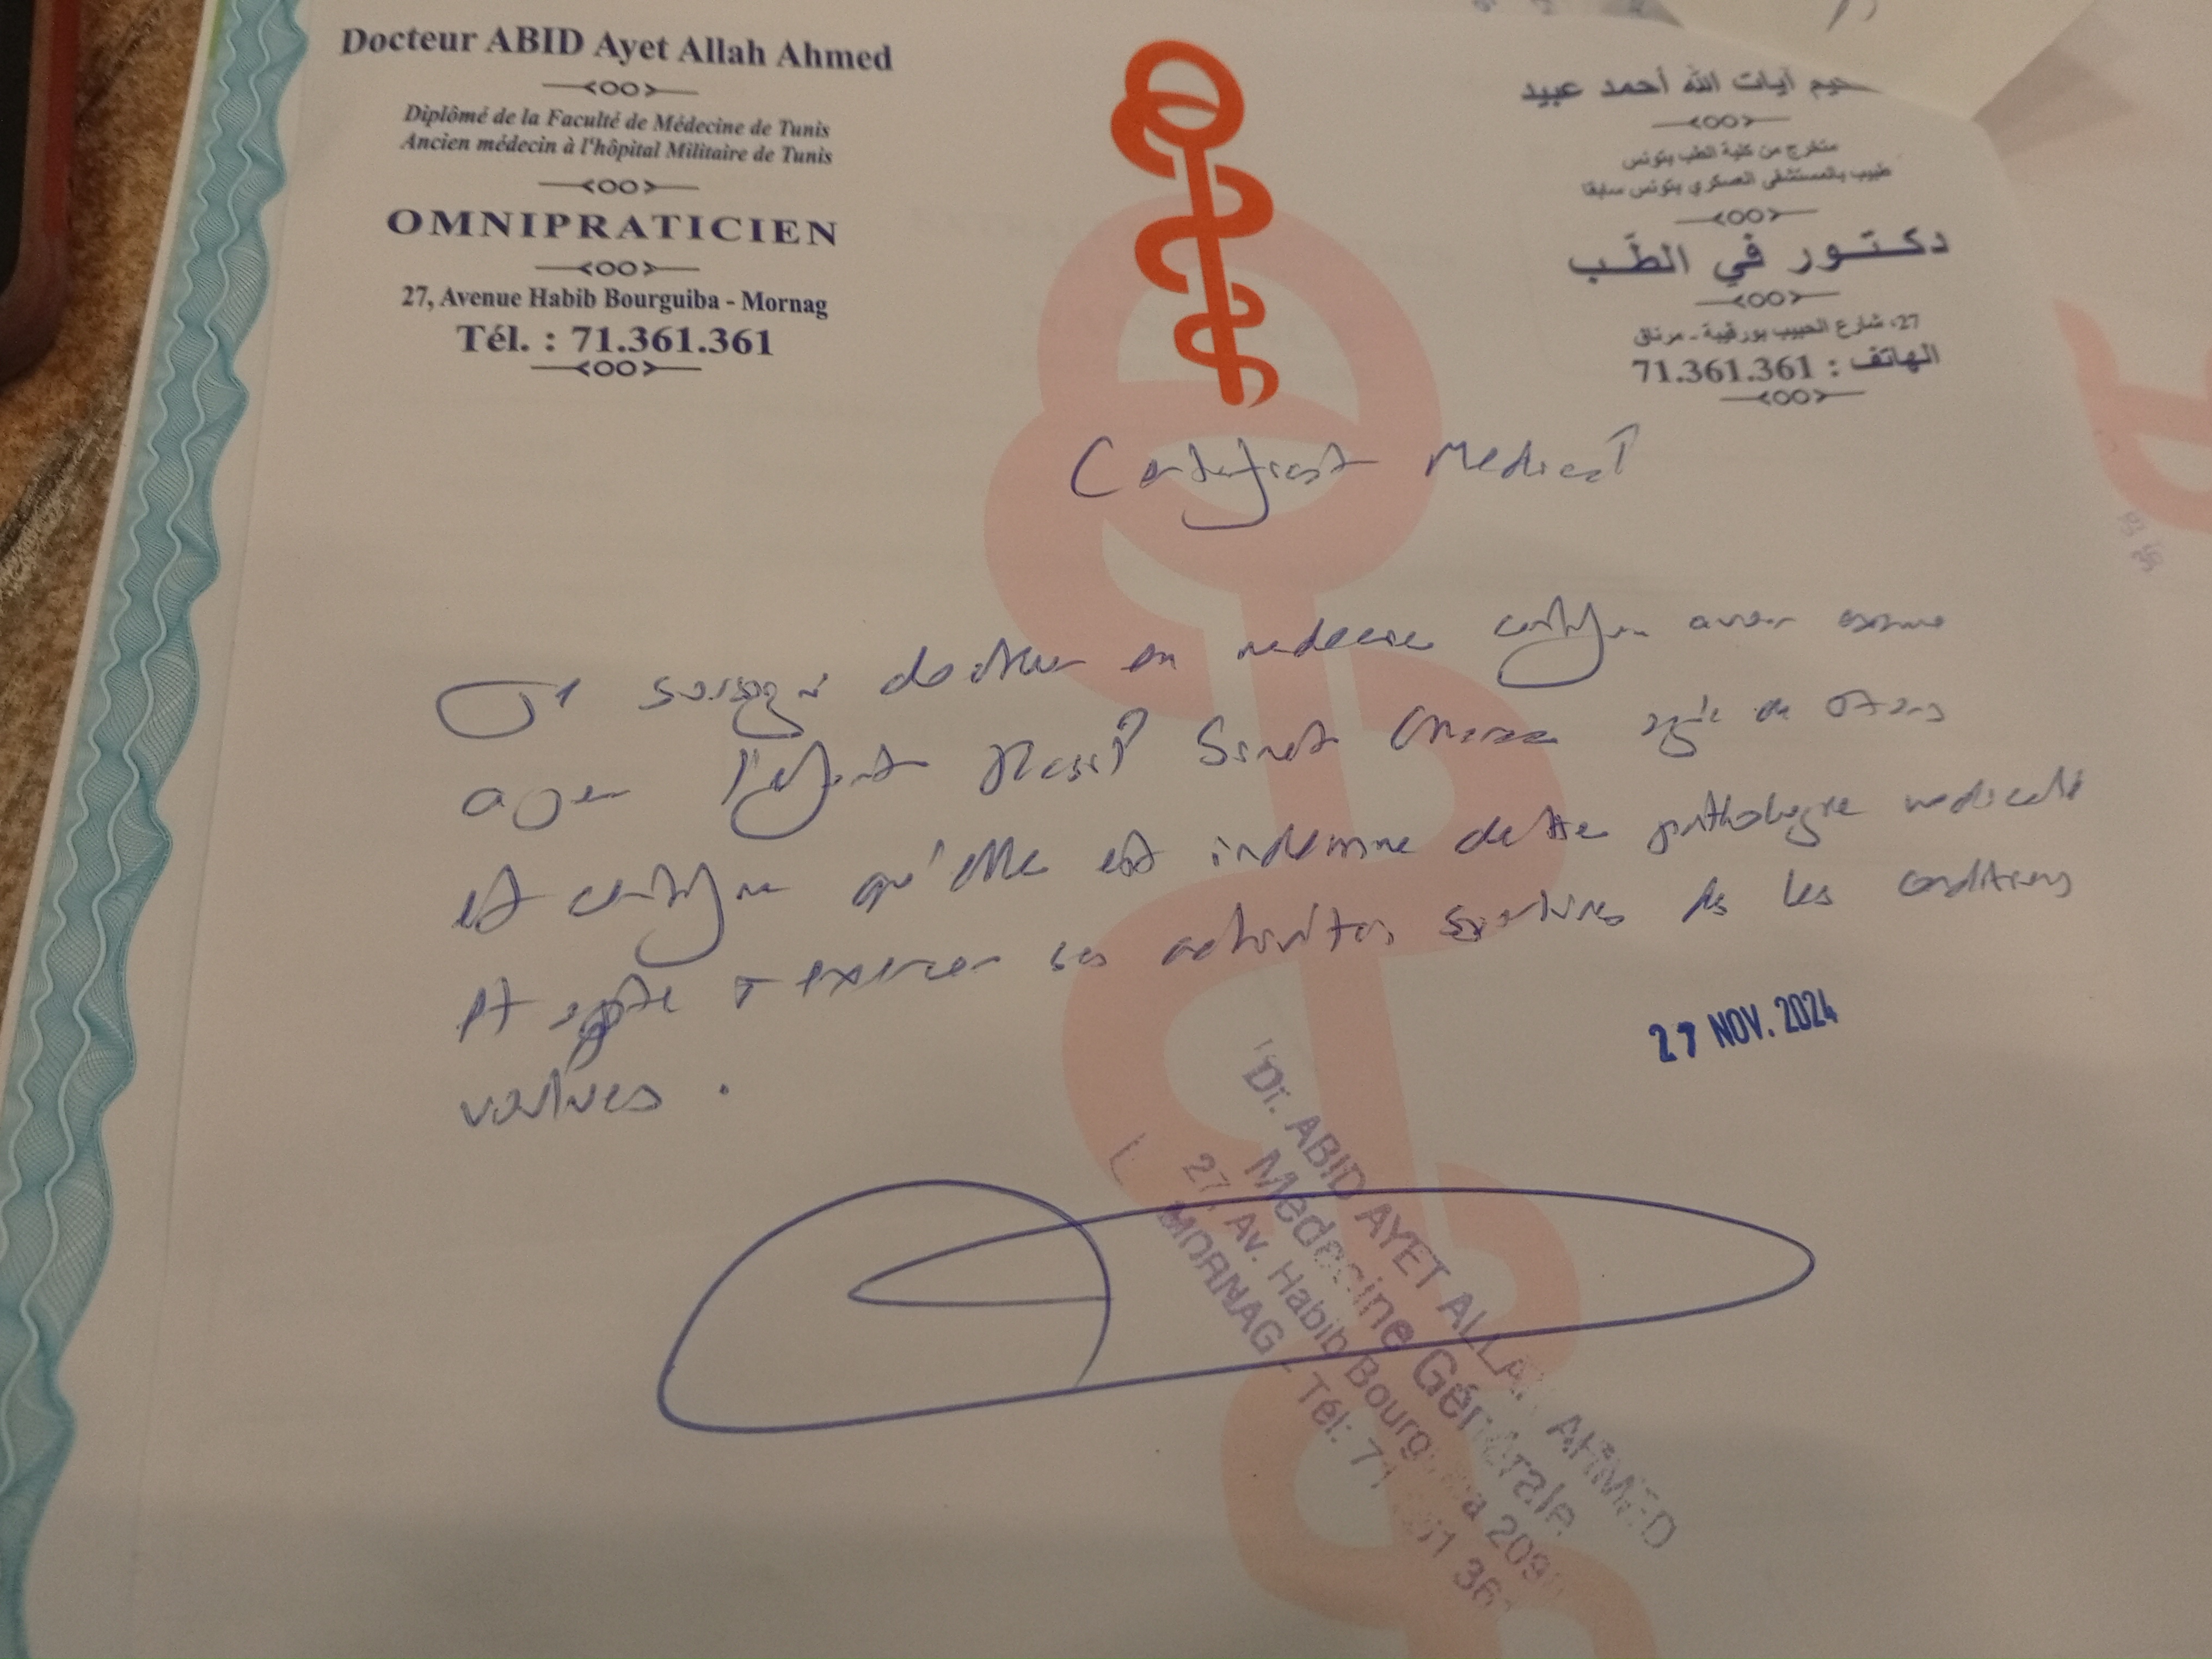 Docteur ABID Ayet Allah Ahmed
Diplômé de la Faculté de Médecine de Tunis
Ancien médecin à l'hôpital Militaire de Tunis
OMNIPRATICIEN
27, Avenue Habib Bourguiba - Mornag
Tél. : 71.361.361
آيات الله أحمد عبيد
متخرج من كلية الطب بتونس
طبيب بالمستشفى العسكري بتونس سابقا
دكتور في الطّب
27، شارع الحبيب بورقيبة - مرناق
الهاتف : 71.361.361
Certificat Medical
docteur en medecine certifie avoir examine
l'enfant agée de
et certifie qu'elle est indemne de tte pathologie medicale
et apte a exercer ses activites sportives ds les conditions
voulues .
27 NOV. 2024
Dr. ABID AYET ALLAH AHMED
Médecine Générale
27, Av. Habib Bourguiba
MORNAG - Tél: 71